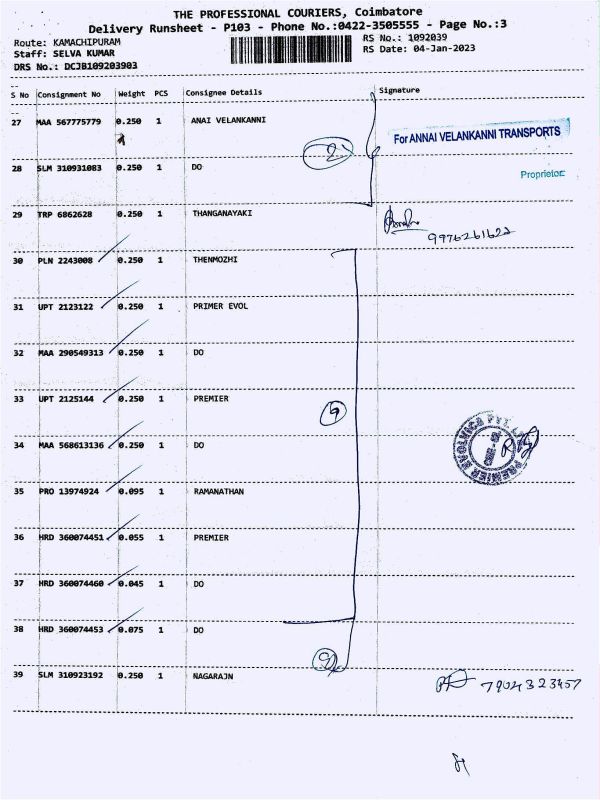 THE PROFESSIONAL COURIERS, Coimbatore
Delivery Runsheet - P103 - Phone No.:0422-3505555 - Page No.:3
Route: KAMACHIPURAM
RS No.: 1092039
Staff: SELVA KUMAR
RS Date: 04-Jan-2023
DRS No.: DCJB109203903
S No Consignment No Weight PCS Consignee Details Signature
27 MAA 567775779 0.250 1 ANAI VELANKANNI
For ANNAI VELANKANNI TRANSPORTS
2
28 SLM 310931083 0.250 1 DO
Proprietor
29 TRP 6862628 0.250 1 THANGANAYAKI
9976261622
30 PLN 2243008 0.250 1 THENMOZHI
31 UPT 2123122 0.250 1 PRIMER EVOL
32 MAA 290549313 0.250 1 DO
33 UPT 2125144 0.250 1 PREMIER
9
34 MAA 568613136 0.250 1 DO
PREMIER EVOLVICS PVT.
35 PRO 13974924 0.095 1 RAMANATHAN
36 HRD 360074451 0.055 1 PREMIER
37 HRD 360074460 0.045 1 DO
38 HRD 360074453 0.075 1 DO
9
39 SLM 310923192 0.250 1 NAGARAJN
7904323457